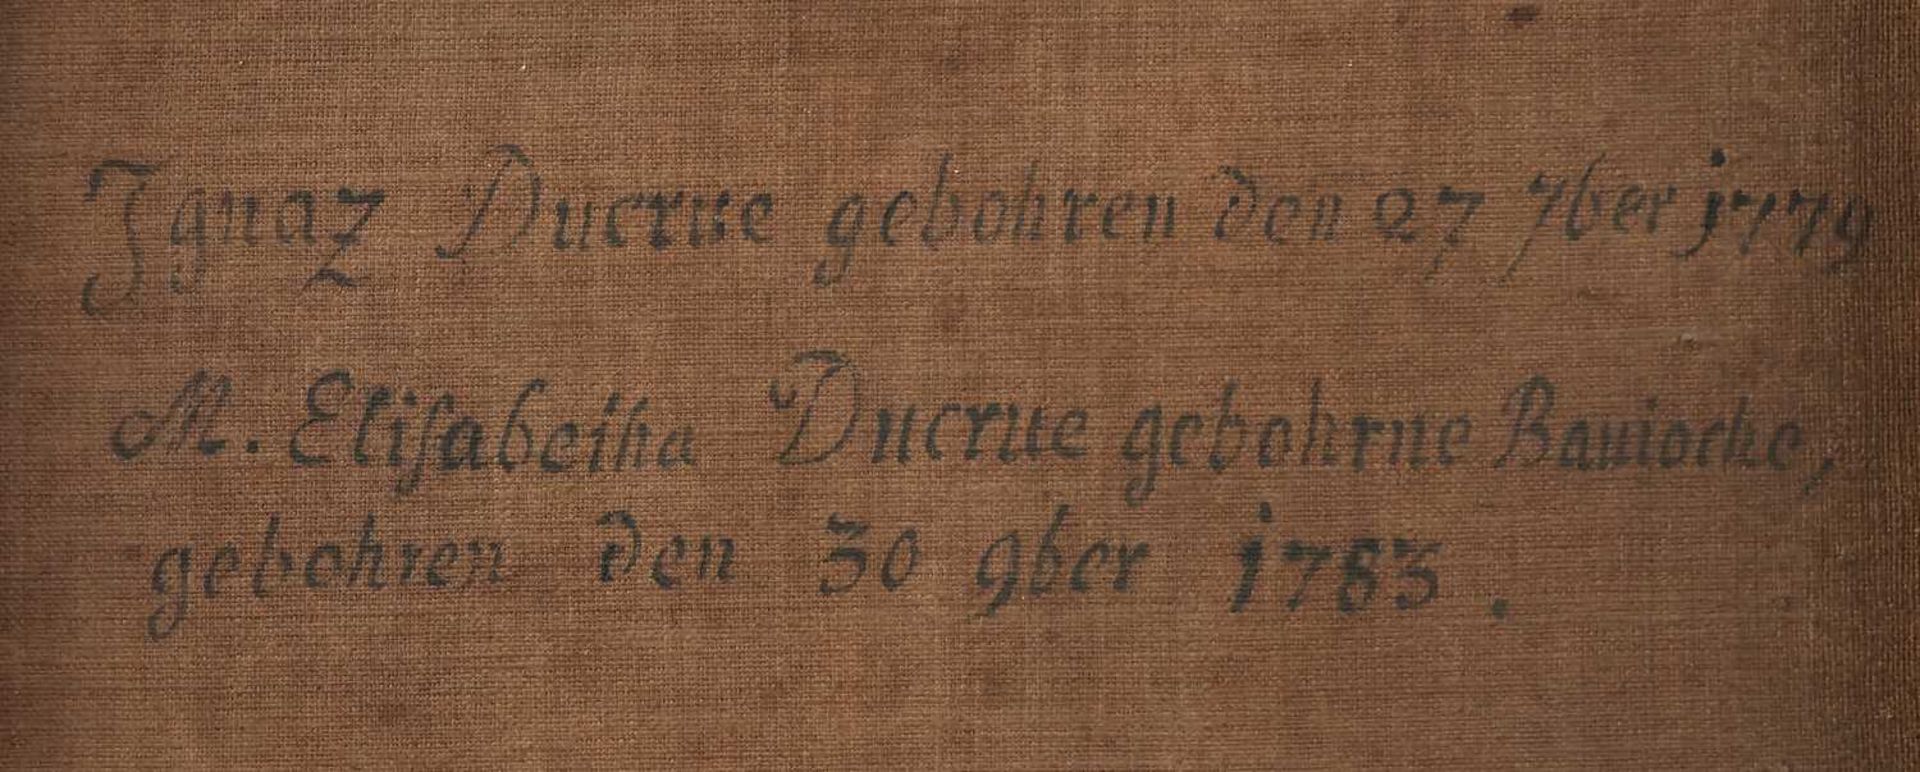 Ignaz Ducrue gebohren den 27 7ber 1779
M. Eliſabetha Ducrue gebohrne
gebohren den 30 9ber 1783.